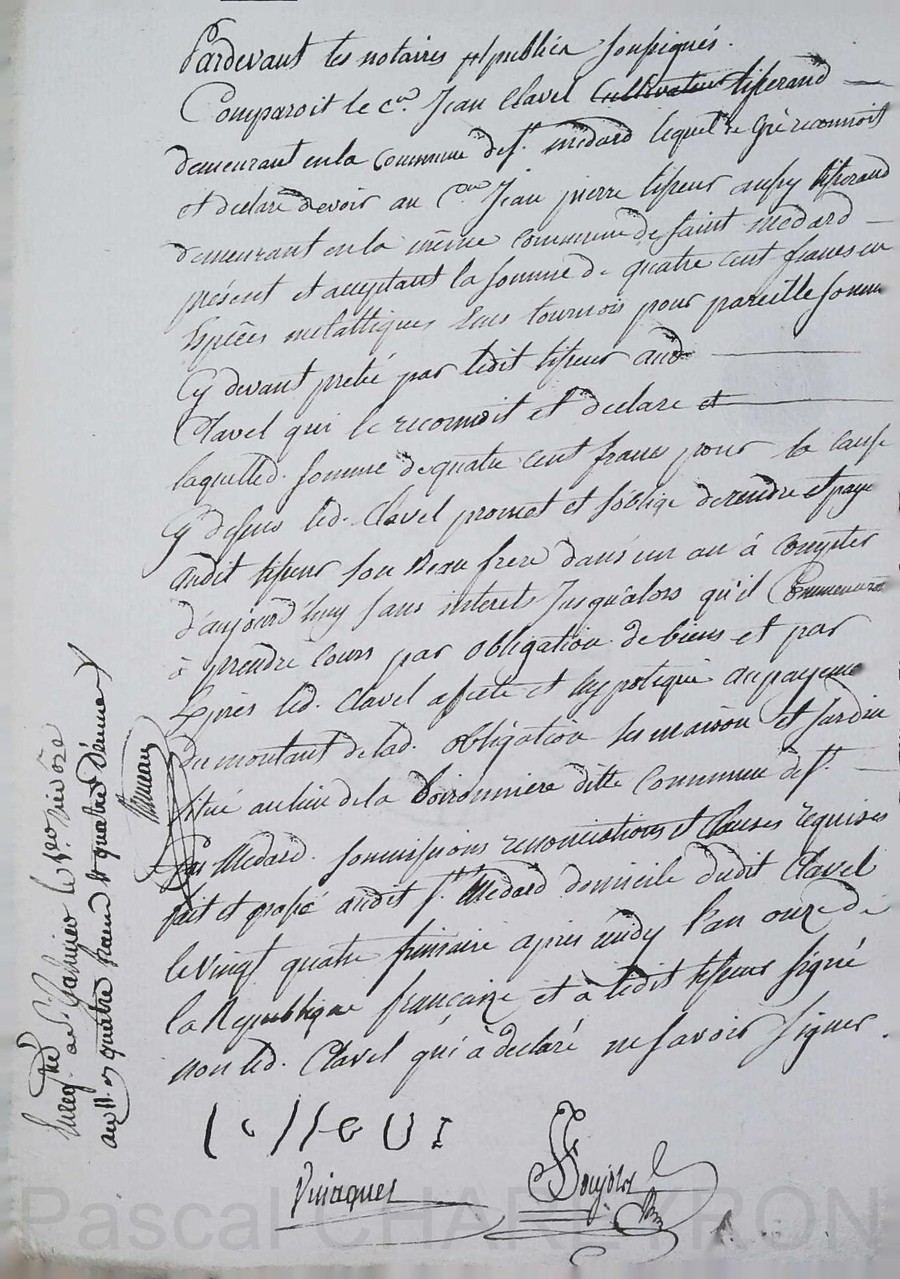 Pardevant les notaires publics soussignés.
Comparoit le cen. Jean Clavel Cultivateur tisserand
demeurant en la Commune de St. medard lequel de Gré reconnoit
et declare devoir au Cen Jean pierre tisseur aussy tisserand
demeurant en la même Commune de saint medard
présent et acceptant la somme de quatre cent francs en
Espèces metalliques sous tournois pour pareille somme
Cy devant preté par ledit tisseur aud.
Clavel qui le reconnoit et declare et
laquelled. somme de quatre cent francs pour la cause
Cy dessus led. Clavel promet et soblige de rendre et payé
audit tisseur son Beau frere dans un an à compter
d'aujourd'huy sans interet Jusqu'alors qu'il Commencera
à prendre cours par obligation de biens et par
Exprès led. Clavel afecte et hypotèque au payeme
du montant de lad. obligation ses maison et Jardin
situé au lieu de la Commune de St.
Medard. soumissions renonciations et Clauses requises
fait et passé audit St. Medard domicile dudit Clavel
le vingt quatre frimaire après midy l'an onze de
la Republique française et à ledit tisseur signé
non led. Clavel qui à declaré ne savoir signer.
Enregtré à St. Galmier le 1er nivose
an 11. quatre francs quatre décimes
tisseur
Pascal CHAREYRON